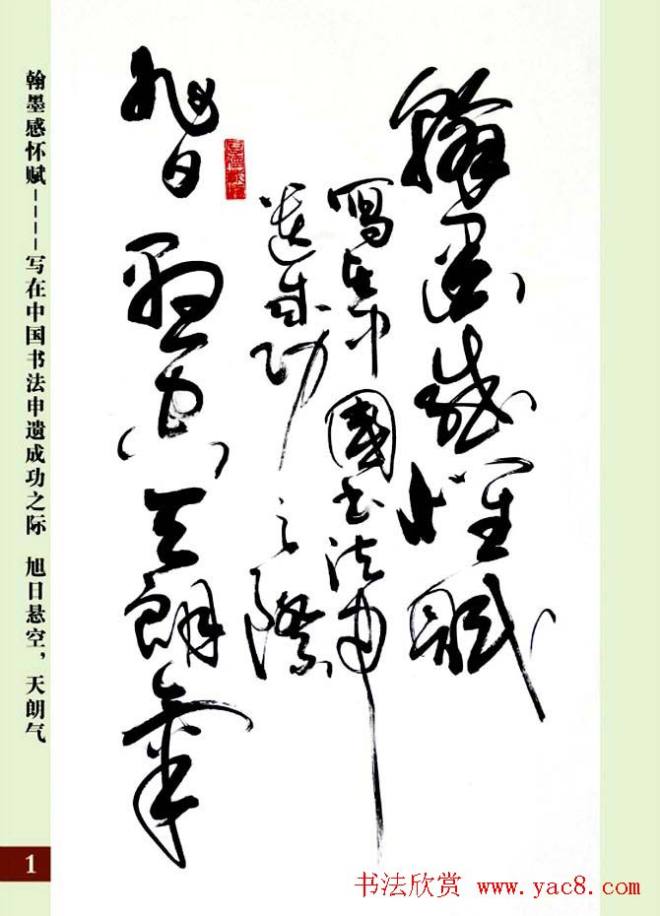 翰墨感怀赋----写在中国书法申遗成功之际 旭日悬空，天朗气
翰墨感懷賦
寫在中國書法申
遺成功之際
旭日懸空天朗氣
1
书法欣赏 www.yac8.com